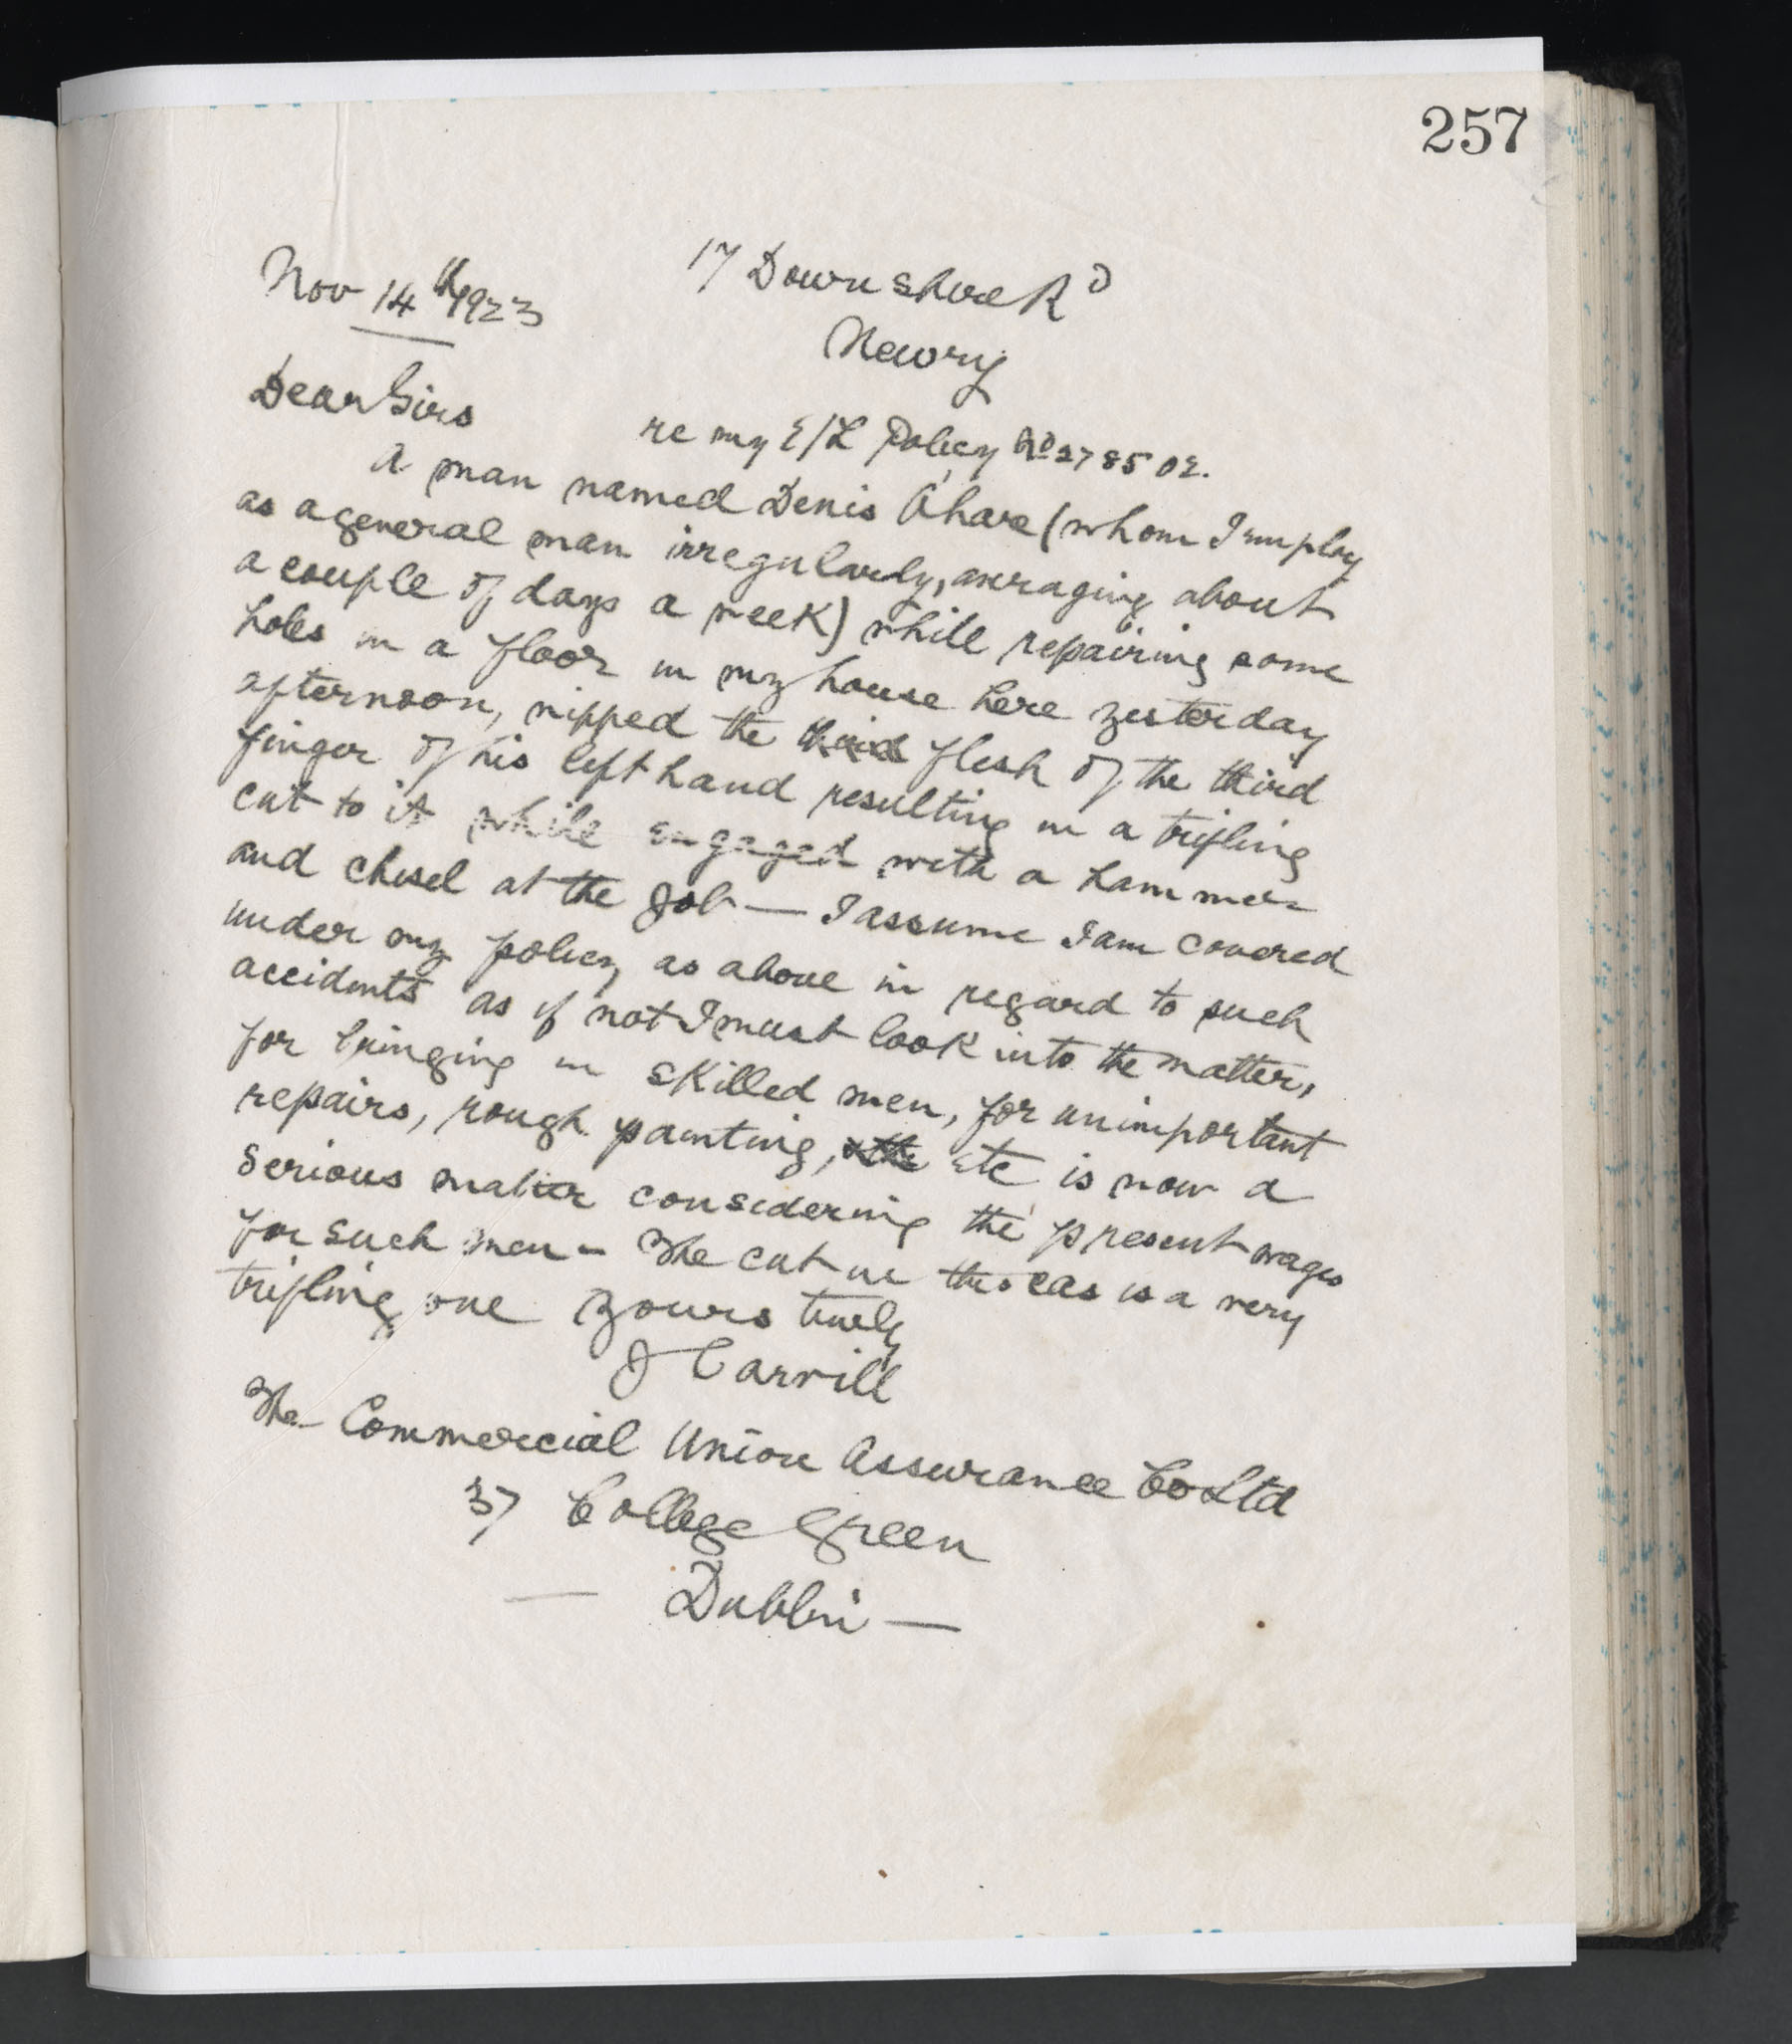 257
Nov 14th 1923
17 Downshire Rd
Newry
Dear Sirs
re my E/L Policy No 278502.
A man named Denis Ohare (whom I employ
as a general man irregularly, averaging about
a couple of days a week) while repairing some
holes in a floor in my house here yesterday
afternoon, nipped the flesh of the third
finger of his left hand resulting in a trifling
cut to it while engaged with a hammer
and chisel at the job — I assume I am covered
under my policy as above in regard to such
accidents as if not I must look into the matter,
for bringing in skilled men, for unimportant
repairs, rough painting, etc is now a
serious matter considering the present wages
for such men - The cut in this cas is a very
trifling one Yours truly
J Carvill
The Commercial Union Assurance Co Ltd
37 College Green
— Dublin —